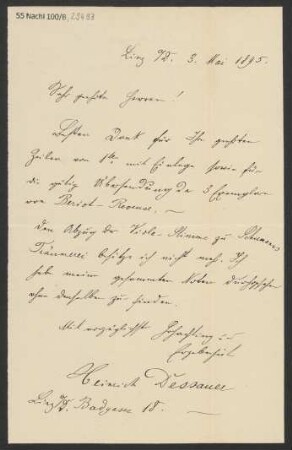 55 Nachl 100/B,
Linz a/D. 3. Mai 1895.
Sehr geehrte Herren!
Besten Dank für Ihr geehrtes
Zeilen vom 1ten mit Einlage sowie für
die gütige Übersendung der 3 Exemplare
von Beriot-Revue. —
Den Abzug der Viola-Stimme zu Schumanns
Träumerei besitze ich nicht mehr. Ich
habe meine gesammten Noten durchgesehen
ohne denselben zu finden.
Mit vorzüglichster Hochachtung
Ergebenst
Heinrich Dessauer
Linz a/D. Badgasse 18. —